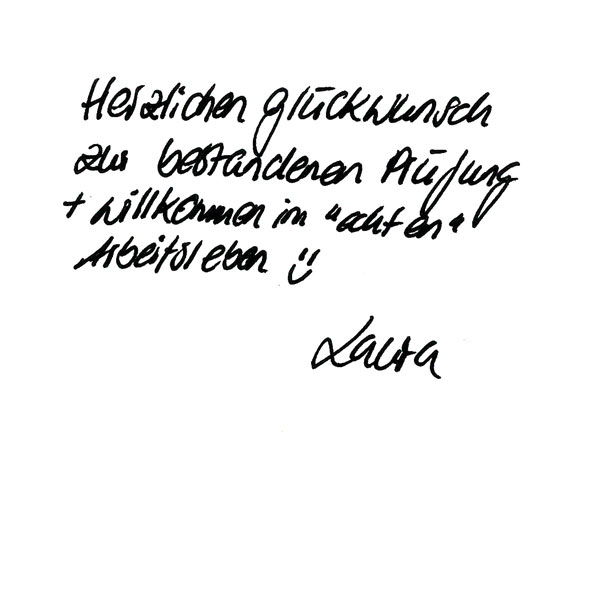 Herzlichen Glückwunsch
zur bestandenen Prüfung
+ willkommen im "echten"
Arbeitsleben ü
Laura